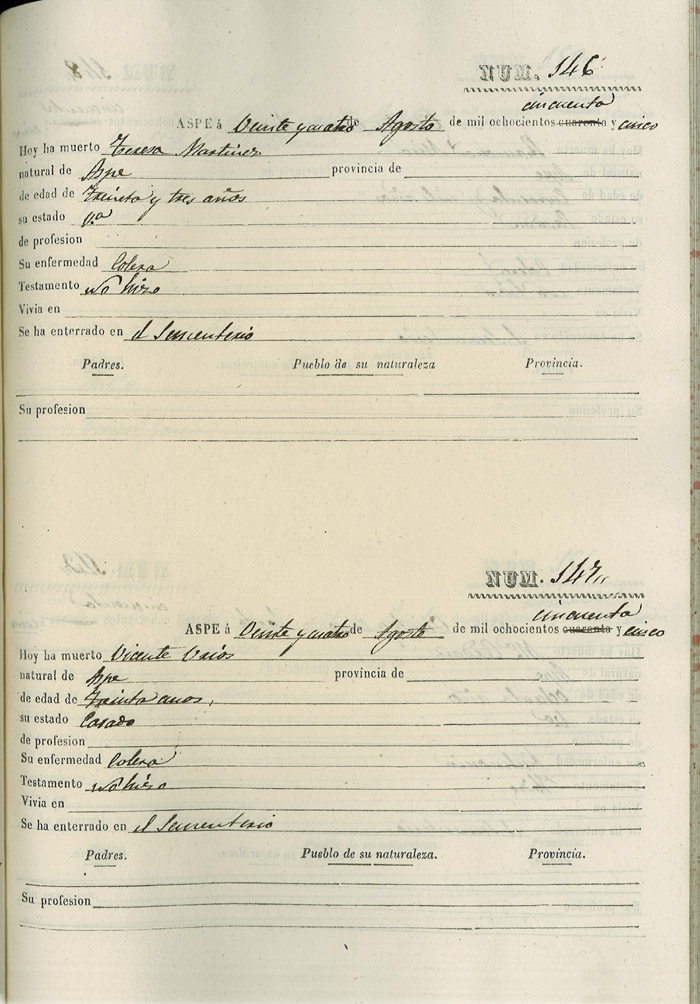 NUM. 146
cincuenta
ASPE á Veinte y cuatro de Agosto de mil ochocientos cuarenta y cinco
Hoy ha muerto Teresa Martinez
natural de Aspe provincia de
de edad de Treinta y tres años
su estado
de profesion
Su enfermedad Colera
Testamento no hizo
Vivia en
Se ha enterrado en el Sementerio
Padres. Pueblo de su naturaleza Provincia.
Su profesion
NUM. 147
cincuenta
ASPE á Veinte y cuatro de Agosto de mil ochocientos cuaranta y cinco
Hoy ha muerto Vicente Urios
natural de Aspe provincia de
de edad de Treinta años,
su estado Casado
de profesion
Su enfermedad Colera
Testamento no hizo
Vivia en
Se ha enterrado en el Sementerio
Padres. Pueblo de su naturaleza. Provincia.
Su profesion